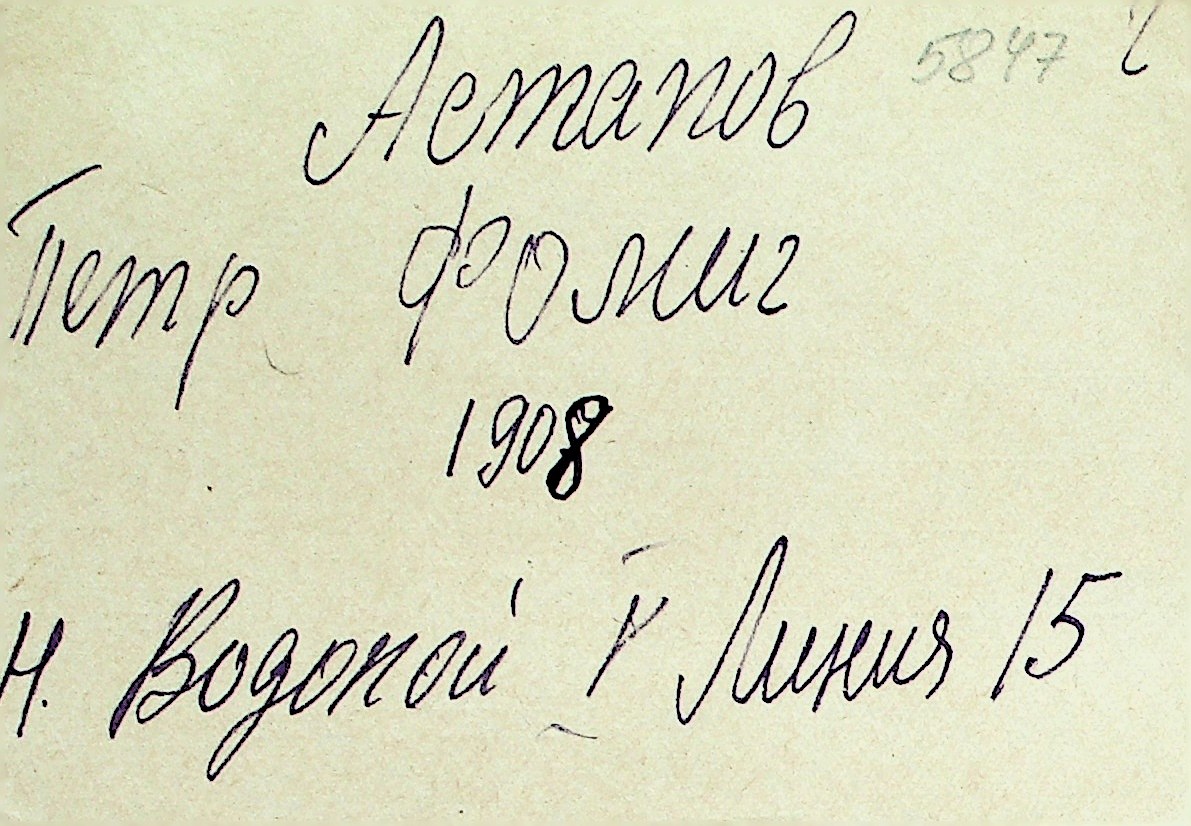 Астапов 5847
Петр Фомич
1908
Н. Водопой V Линия 15